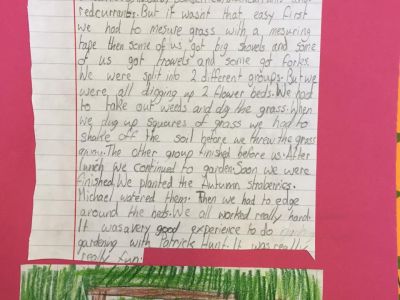 redcurrants. But it wasnt that easy first
we had to mesure grass with a mesuring
tape then some of us got big shovels and some
of us got trowels and some got forks.
We were split into 2 different groups. But we
were all digging up 2 flower beds. We had
to take out weeds and dig the grass. When
we dug up squares of grass we had to
shake off the soil before we threw the grass
away. The other group finished before us. After
lunch we continued to garden. Soon we were
finished. We planted the Autumn stroberrics.
Michael watered them. Then we had to edge
around the beds. We all worked really hard.
It was a very good experience to do
gardening with Patrick Hunt. It was really
really fun.